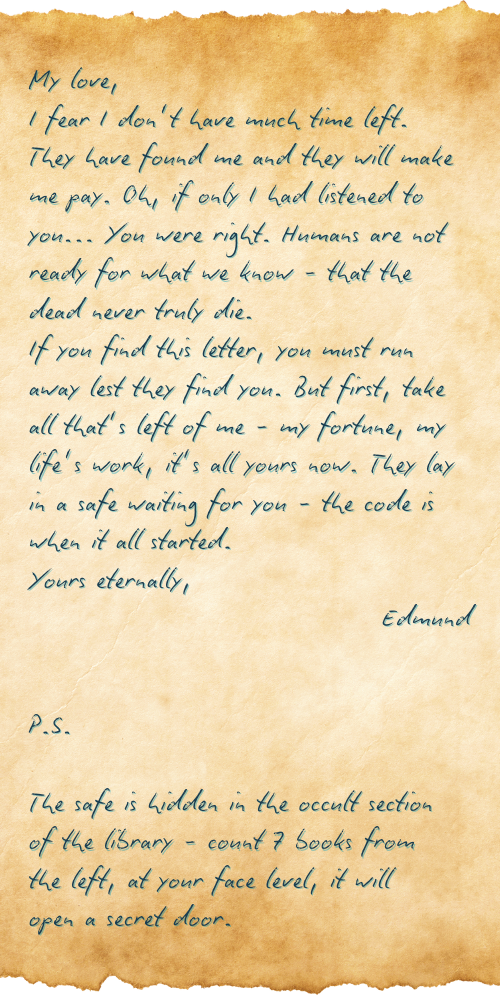 My love,
I fear I don't have much time left.
They have found me and they will make
me pay. Oh, if only I had listened to
you... You were right. Humans are not
ready for what we know - that the
dead never truly die.
If you find this letter, you must run
away lest they find you. But first, take
all that's left of me - my fortune, my
life's work, it's all yours now. They lay
in a safe waiting for you - the code is
when it all started.
Yours eternally,
Edmund
P.S.
The safe is hidden in the occult section
of the library - count 7 books from
the left, at your face level, it will
open a secret door.